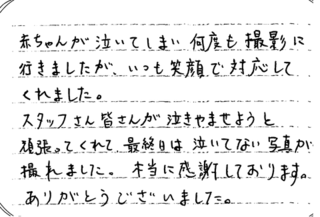 赤ちゃんが泣いてしまい何度も撮影に
行きましたが、いつも笑顔で対応して
くれました。
スタッフさん皆さんが泣きやませようと
頑張ってくれて、最終日は泣いてない写真が
撮れました。本当に感謝しております。
ありがとうございました。